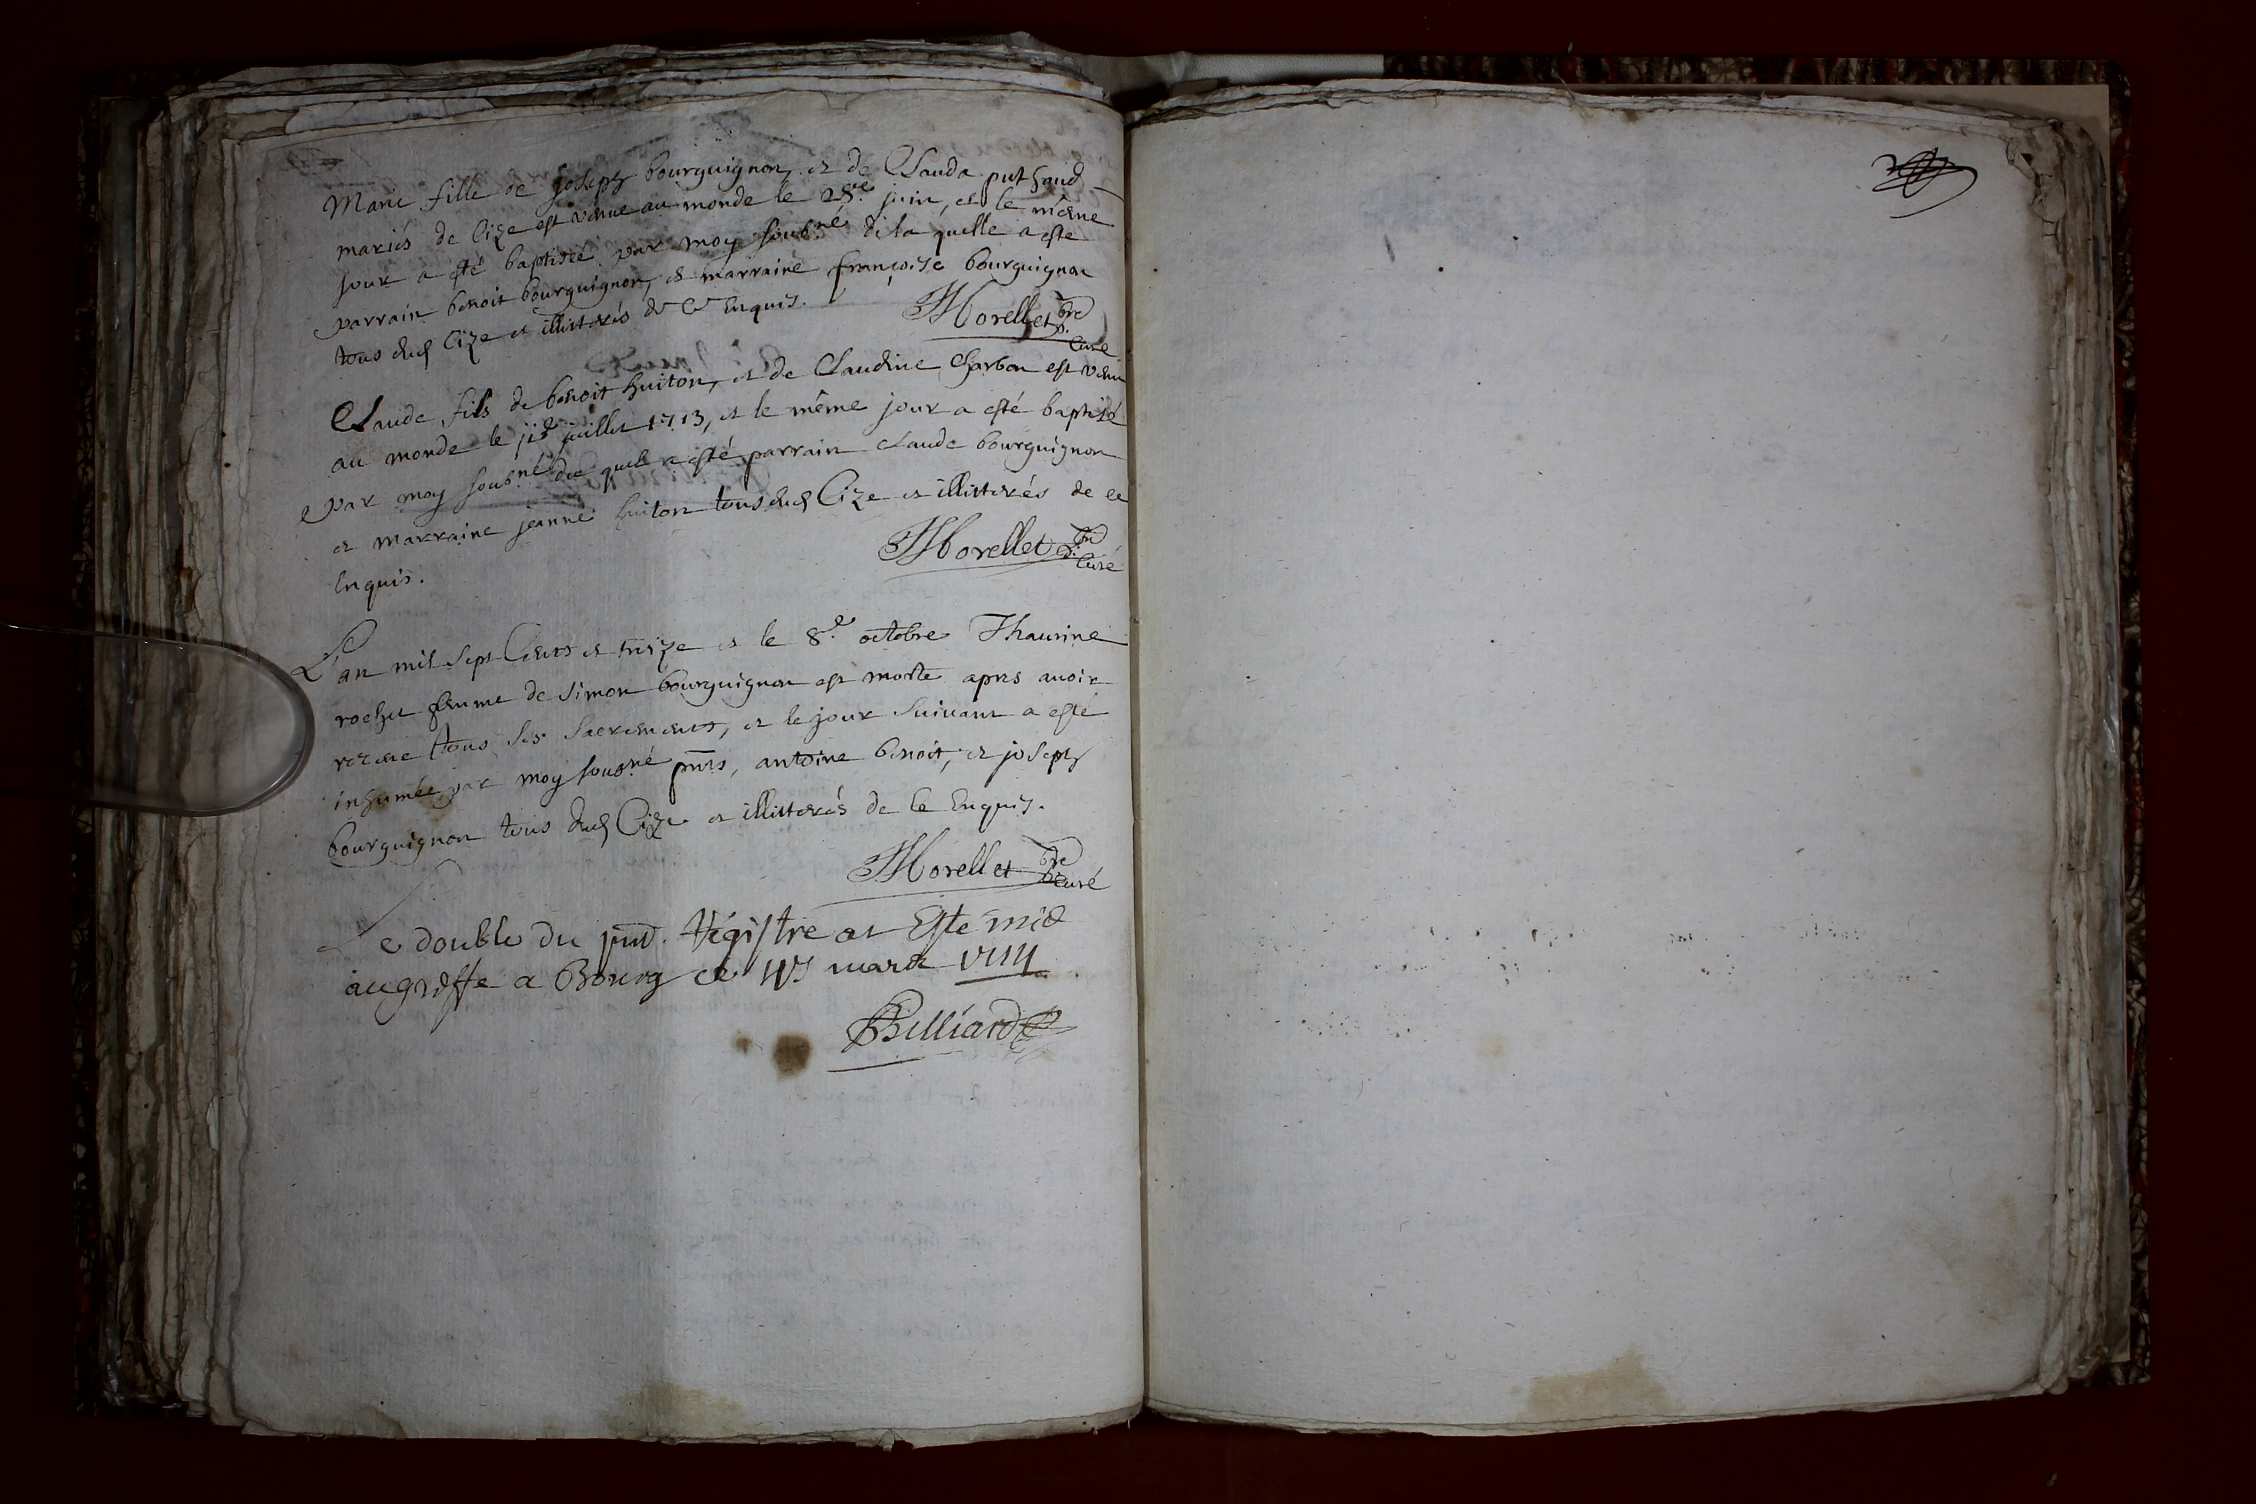 Marie fille de joseph bourguignon, et de Clauda puthaud
mariés de Cize est venue au monde le 28.e juin, et le même
jour a esté baptisée par moy soubné de la quelle a esté
parrain benoit bourguignon, et marraine françoise bourguignon
tous dud Cize et illitterés de ce Enquis.
Morellet pbre
Curé
Claude fils de benoit huiton, et de Claudine Charbon est venu
au monde le juillet 1713, et le même jour a esté baptisé
par moy soubné du quel a esté parrain claude bourguignon
et marraine jeanne huiton tous dud Cize et illitterés de ce
Enquis.
Morellet pbre
Curé
L'an mil sept Cents et treize et le 8.e octobre Thaurine
rochet femme de simon bourguignon est morte apres avoir
receue tous ses sacrements, et le jour suivant a esté
inhumée par moy sousné pnts, antoine benoit, et joseph
bourguignon tous dud Cize et illitterés de ce Enquis.
Morellet pbre
curé
Le double du pnt. Régistre at Este mis
au greffe a Bourg ce mars
Billiard